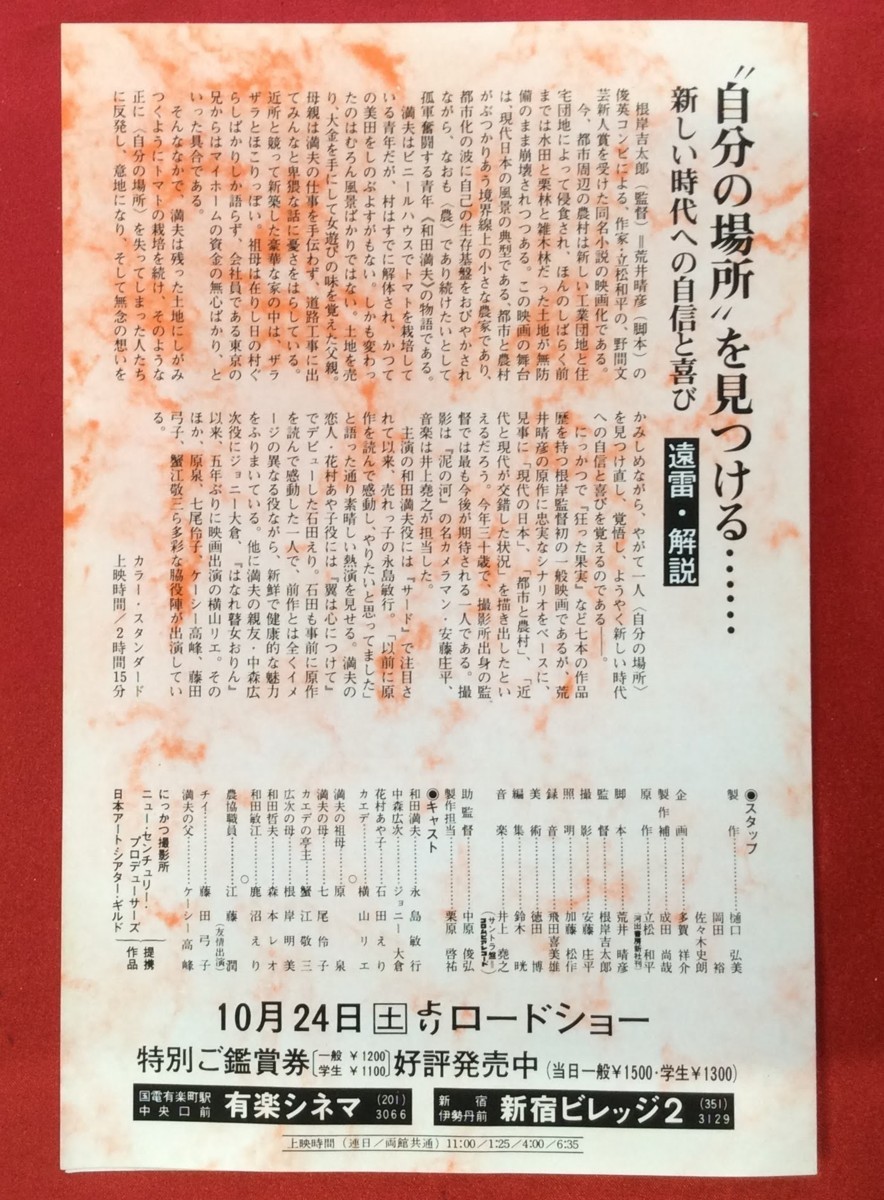 “自分の場所”を見つける……
新しい時代への自信と喜び
遠雷・解説
根岸吉太郎(監督)＝荒井晴彦(脚本)の
俊英コンビによる、作家・立松和平の、野間文
芸新人賞を受けた同名小説の映画化である。
今、都市周辺の農村は新しい工業団地と住
宅団地によって侵食され、ほんのしばらく前
までは水田と栗林と雑木林だった土地が無防
備のまま崩壊されつつある。この映画の舞台
は、現代日本の風景の典型である、都市と農村
がぶつかりあう境界線上の小さな農家であり、
都市化の波に自己の生存基盤をおびやかされ
ながら、なおも〈農〉であり続けたいとして
孤軍奮闘する青年《和田満夫》の物語である。
満夫はビニールハウスでトマトを栽培して
いる青年だが、村はすでに解体され、かつて
の美田をしのぶよすがもない。しかも変わっ
たのはむろん風景ばかりではない。土地を売
り、大金を手にして女遊びの味を覚えた父親。
母親は満夫の仕事を手伝わず、道路工事に出
てみんなと卑猥な話に憂さをはらしている。
近所と競って新築した豪華な家の中は、ザラ
ザラとほこりっぽい。祖母は在りし日の村ぐ
らしばかりしか語らず、会社員である東京の
兄からはマイホームの資金の無心ばかり、と
いった具合である。
そんななかで、満夫は残った土地にしがみ
つくようにトマトの栽培を続け、そのような
正に〈自分の場所〉を失ってしまった人たち
に反発し、意地になり、そして無念の想いを
かみしめながら、やがて一人〈自分の場所〉
を見つけ直し、覚悟し、ようやく新しい時代
への自信と喜びを覚えるのである――。
にっかつで『狂った果実』など七本の作品
歴を持つ根岸監督初の一般映画であるが、荒
井晴彦の原作に忠実なシナリオをベースに、
見事に「現代の日本」、「都市と農村」、「近
代と現代が交錯した状況」を描き出したとい
えるだろう。今年三十歳で、撮影所出身の監
督では最も今後が期待される一人である。撮
影は『泥の河』の名カメラマン・安藤庄平、
音楽は井上堯之が担当した。
主演の和田満夫役には『サード』で注目さ
れて以来、売れっ子の永島敏行。「以前に原
作を読んで感動し、やりたいと思ってました」
と語った通り素晴しい熱演を見せる。満夫の
恋人・花村あや子役には『翼は心につけて』
でデビューした石田えり。石田も事前に原作
を読んで感動した一人で、前作とは全くイメ
ージの異なる役ながら、新鮮で健康的な魅力
をふりまいている。他に満夫の親友・中森広
次役にジョニー大倉、『はなれ瞽女おりん』
以来、五年ぶりに映画出演の横山リエ。その
ほか、原泉、七尾伶子、ケーシー高峰、藤田
弓子、蟹江敬三ら多彩な脇役陣が出演してい
る。
カラー・スタンダード
上映時間／2時間15分
●スタッフ
製作……樋口 弘美
岡田 裕
佐々木史朗
企画……多賀 祥介
製作補……成田 尚哉
原作……立松 和平
河出書房新社刊
脚本……荒井 晴彦
監督……根岸吉太郎
撮影……安藤 庄平
照明……加藤 松作
録音……飛田喜美雄
美術……徳田 博
編集……鈴木 晄
音楽……井上 堯之
(サントラ盤 コロムビアレコード)
助監督……中原 俊弘
製作担当……栗原 啓祐
●キャスト
和田満夫……永島 敏行
中森広次……ジョニー大倉
花村あや子……石田 えり
カエデ……横山 リエ
○
満夫の祖母……原 泉
満夫の母……七尾 伶子
カエデの亭主……蟹江 敬三
広次の母……根岸 明美
和田哲夫……森本 レオ
和田敏江……鹿沼 えり
○
農協職員……江藤 潤
(友情出演)
チイ……藤田 弓子
満夫の父……ケーシー高峰
にっかつ撮影所
ニュー・センチュリー・
プロデューサーズ 提携
日本アート・シアター・ギルド 作品
10月24日土よりロードショー
特別ご鑑賞券〔一般 ¥1200 学生 ¥1100〕好評発売中(当日一般¥1500・学生¥1300)
国電有楽町駅 中央口前 有楽シネマ (201) 3066
新宿 伊勢丹前 新宿ビレッジ2 (351) 3129
上映時間(連日／両館共通)11:00／1:25／4:00／6:35